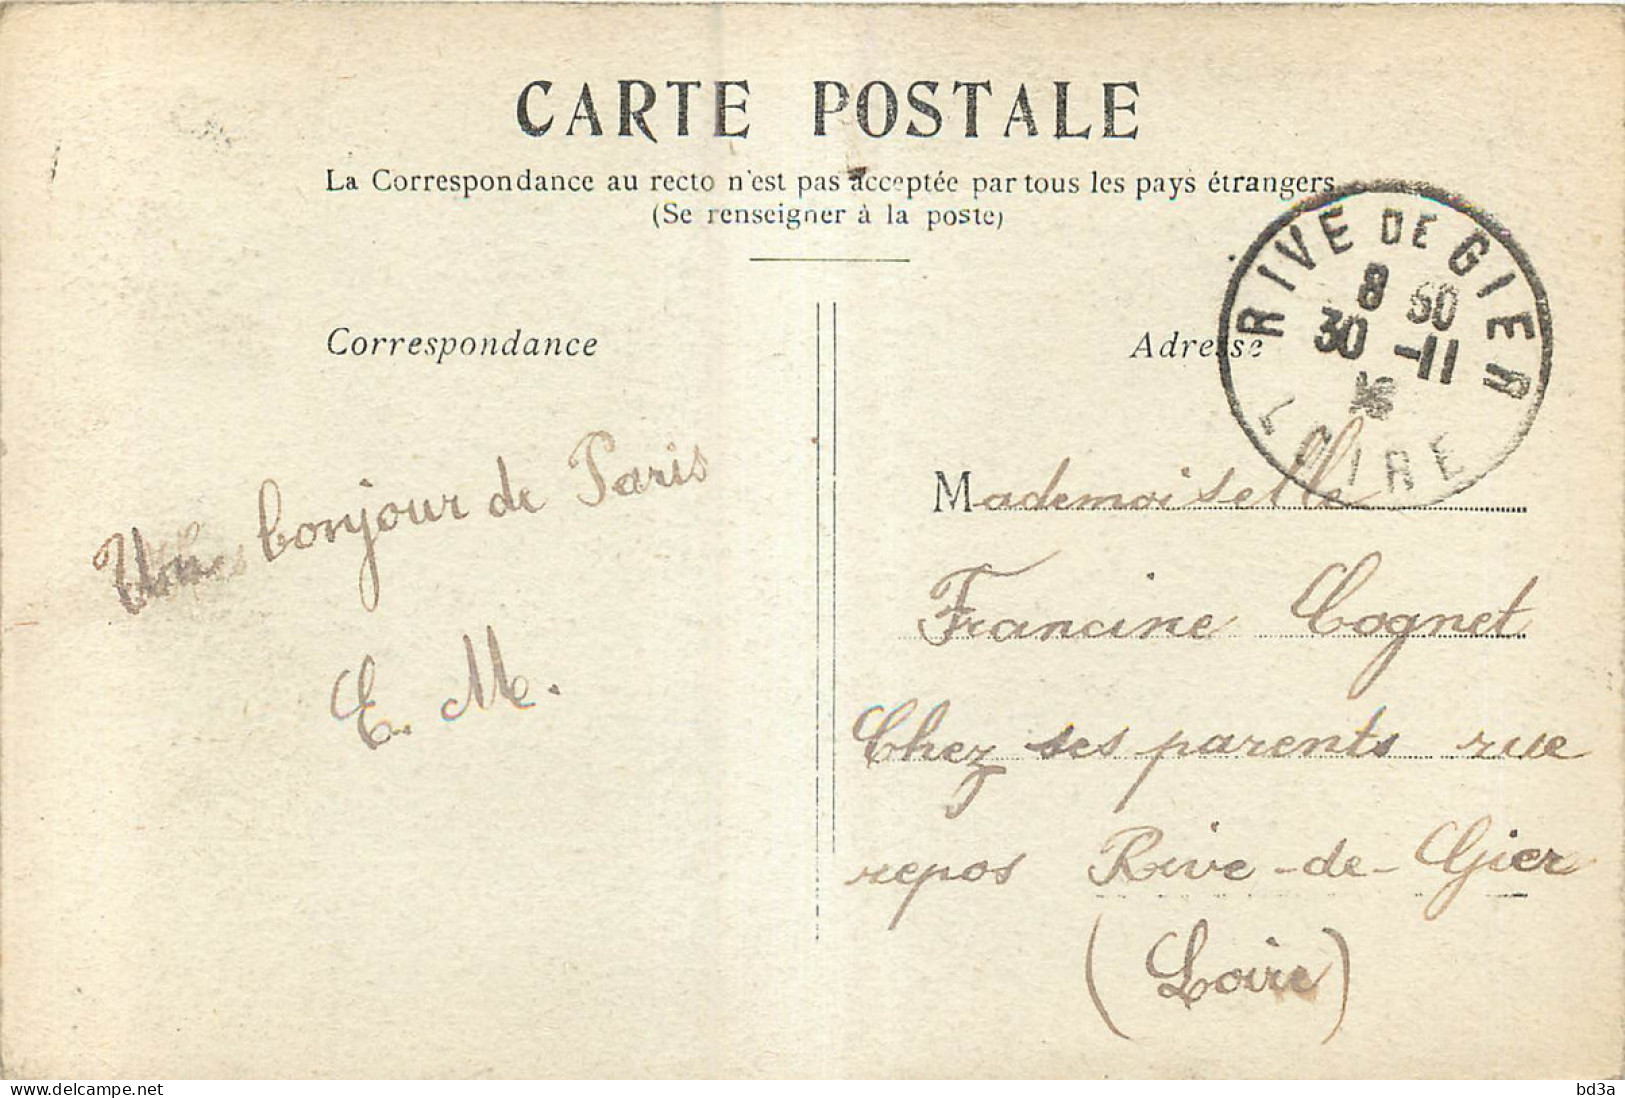 CARTE POSTALE
La Correspondance au recto n'est pas acceptée par tous les pays étrangers
(Se renseigner à la poste)
Correspondance
Adresse
RIVE DE GIER
8 50
30 -11
16
LOIRE
Un bonjour de Paris
E. M.
Mademoiselle
Francine Cognet
Chez ses parents rue
repos Rive-de-Gier
(Loire)
www.delcampe.net
bd3a